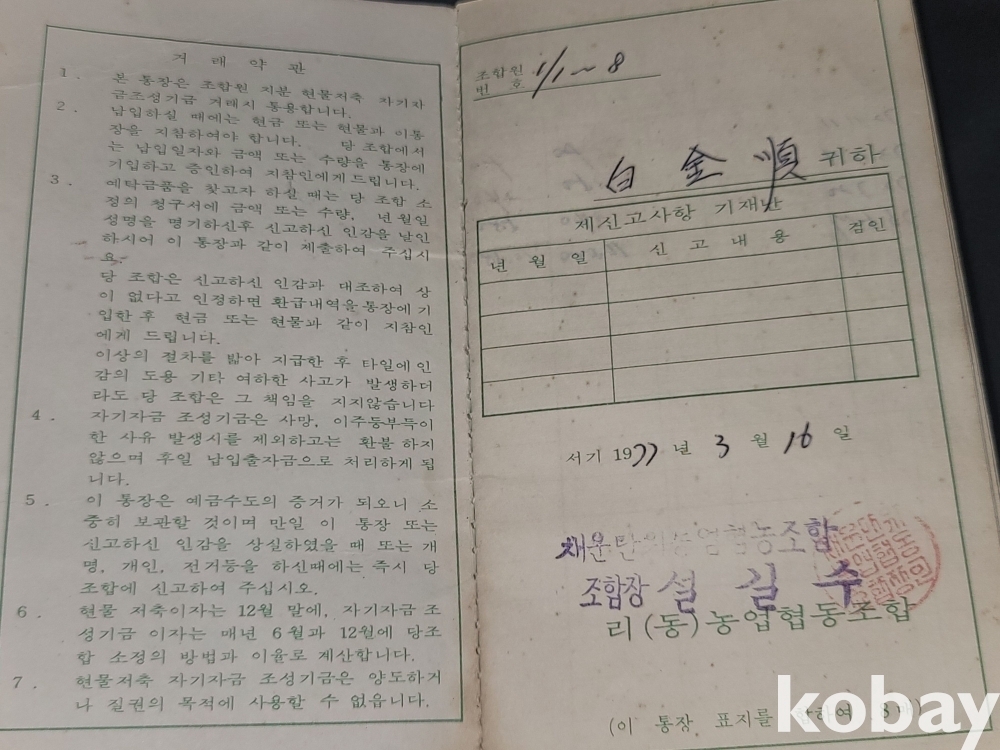 거 래 약 관
1. 본 통장은 조합원 지분 현물저축 자기자
금조성기금 거래시 통용합니다.
2. 납입하실 때에는 현금 또는 현물과 이통
장을 지참하여야 합니다. 당 조합에서
는 납입일자와 금액 또는 수량을 통장에
기입하고 증인하여 지참인에게 드립니다.
3. 예탁금품을 찾고자 하실 때는 당 조합 소
정의 청구서에 금액 또는 수량, 년월일
성명을 명기하신후 신고하신 인감을 날인
하시어 이 통장과 같이 제출하여 주십시
요.
당 조합은 신고하신 인감과 대조하여 상
이 없다고 인정하면 환급내역을 통장에 기
입한 후 현금 또는 현물과 같이 지참인
에게 드립니다.
이상의 절차를 밟아 지급한 후 타일에 인
감의 도용 기타 여하한 사고가 발생하더
라도 당 조합은 그 책임을 지지않습니다
4. 자기자금 조성기금은 사망, 이주등부득이
한 사유 발생시를 제외하고는 환불 하지
않으며 후일 납입출자금으로 처리하게 됩
니다.
5. 이 통장은 예금수도의 증거가 되오니 소
중히 보관할 것이며 만일 이 통장 또는
신고하신 인감을 상실하였을 때 또는 개
명, 개인, 전거등을 하신때에는 즉시 당
조합에 신고하여 주십시오.
6. 현물 저축이자는 12월 말에, 자기자금 조
성기금 이자는 매년 6월과 12월에 당조
합 소정의 방법과 이율로 계산합니다.
7. 현물저축 자기자금 조성기금은 양도하거
나 질권의 목적에 사용할 수 없읍니다.
조합원
번 호 1/1~8
白 金 順 귀하
제신고사항 기재난
년 월 일 신 고 내 용 검인
서기 1977년 3월 16일
채운 농업협동조합
조합장 설 길 수
리(동)농업협동조합
(이 통장, 표지를
kobay